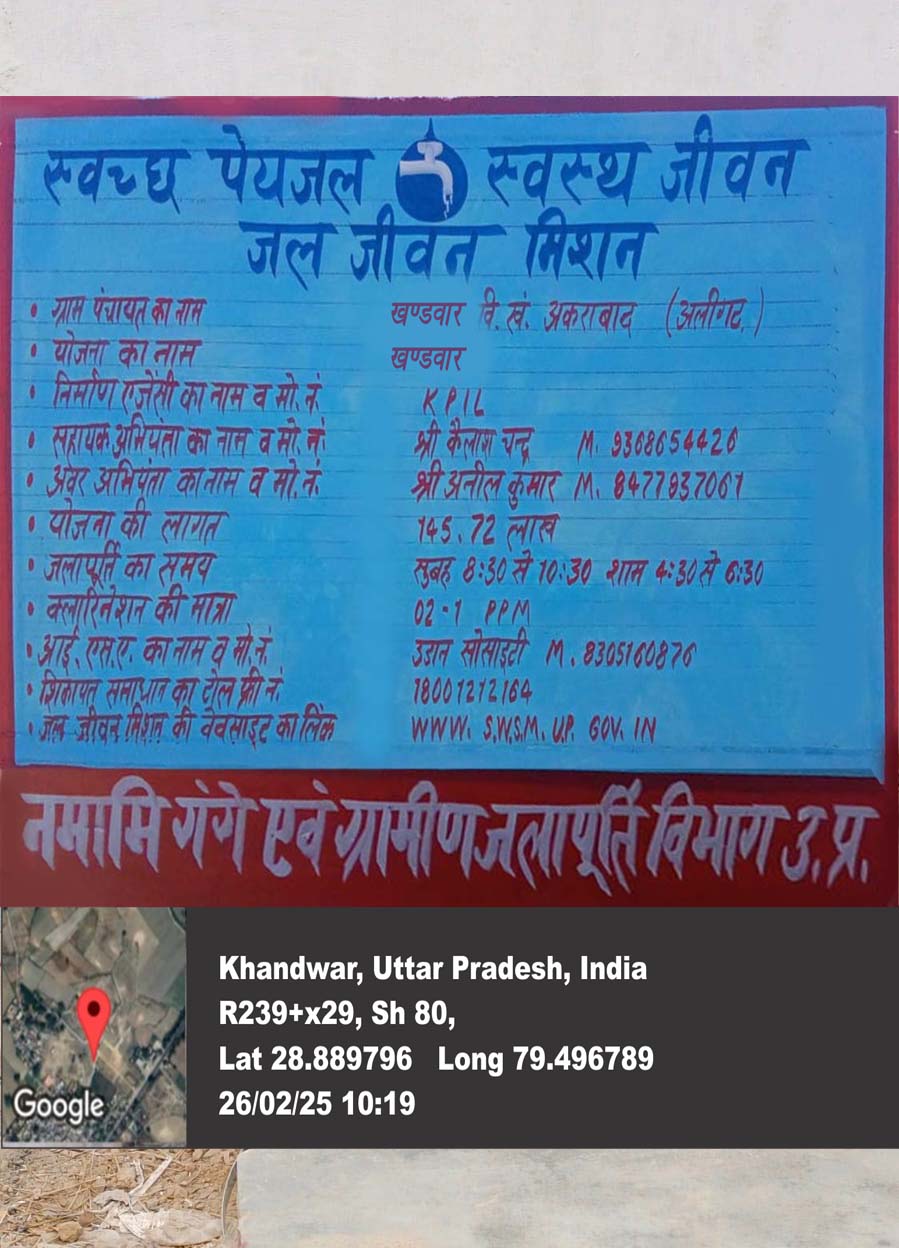 स्वच्छ पेयजल स्वस्थ जीवन
जल जीवन मिशन
• ग्राम पंचायत का नाम खण्डवार वि. खं. अकराबाद (अलीगढ़)
• योजना का नाम खण्डवार
• निर्माण एजेंसी का नाम व मो. नं. KPIL
• सहायक अभियंता का नाम व मो. नं. श्री कैलाश चन्द्र M. 9368654426
• अवर अभियंता का नाम व मो. नं. श्री अनील कुमार M. 8477837061
• योजना की लागत 145.72 लाख
• जलापूर्ति का समय सुबह 8:30 से 10:30 शाम 4:30 से 6:30
• क्लोरिनेशन की मात्रा 02-1 PPM
• आई. एस.ए. का नाम व मो. नं. उडान सोसाइटी M. 8305160876
• शिकायत समाधान का टोल फ्री नं. 18001212164
• जल जीवन मिशन की वेबसाइट का लिंक WWW. S.W.S.M. U.P. GOV. IN
नमामि गंगे एवं ग्रामीण जलापूर्ति विभाग उ.प्र.
Khandwar, Uttar Pradesh, India
R239+x29, Sh 80,
Lat 28.889796 Long 79.496789
26/02/25 10:19
Google